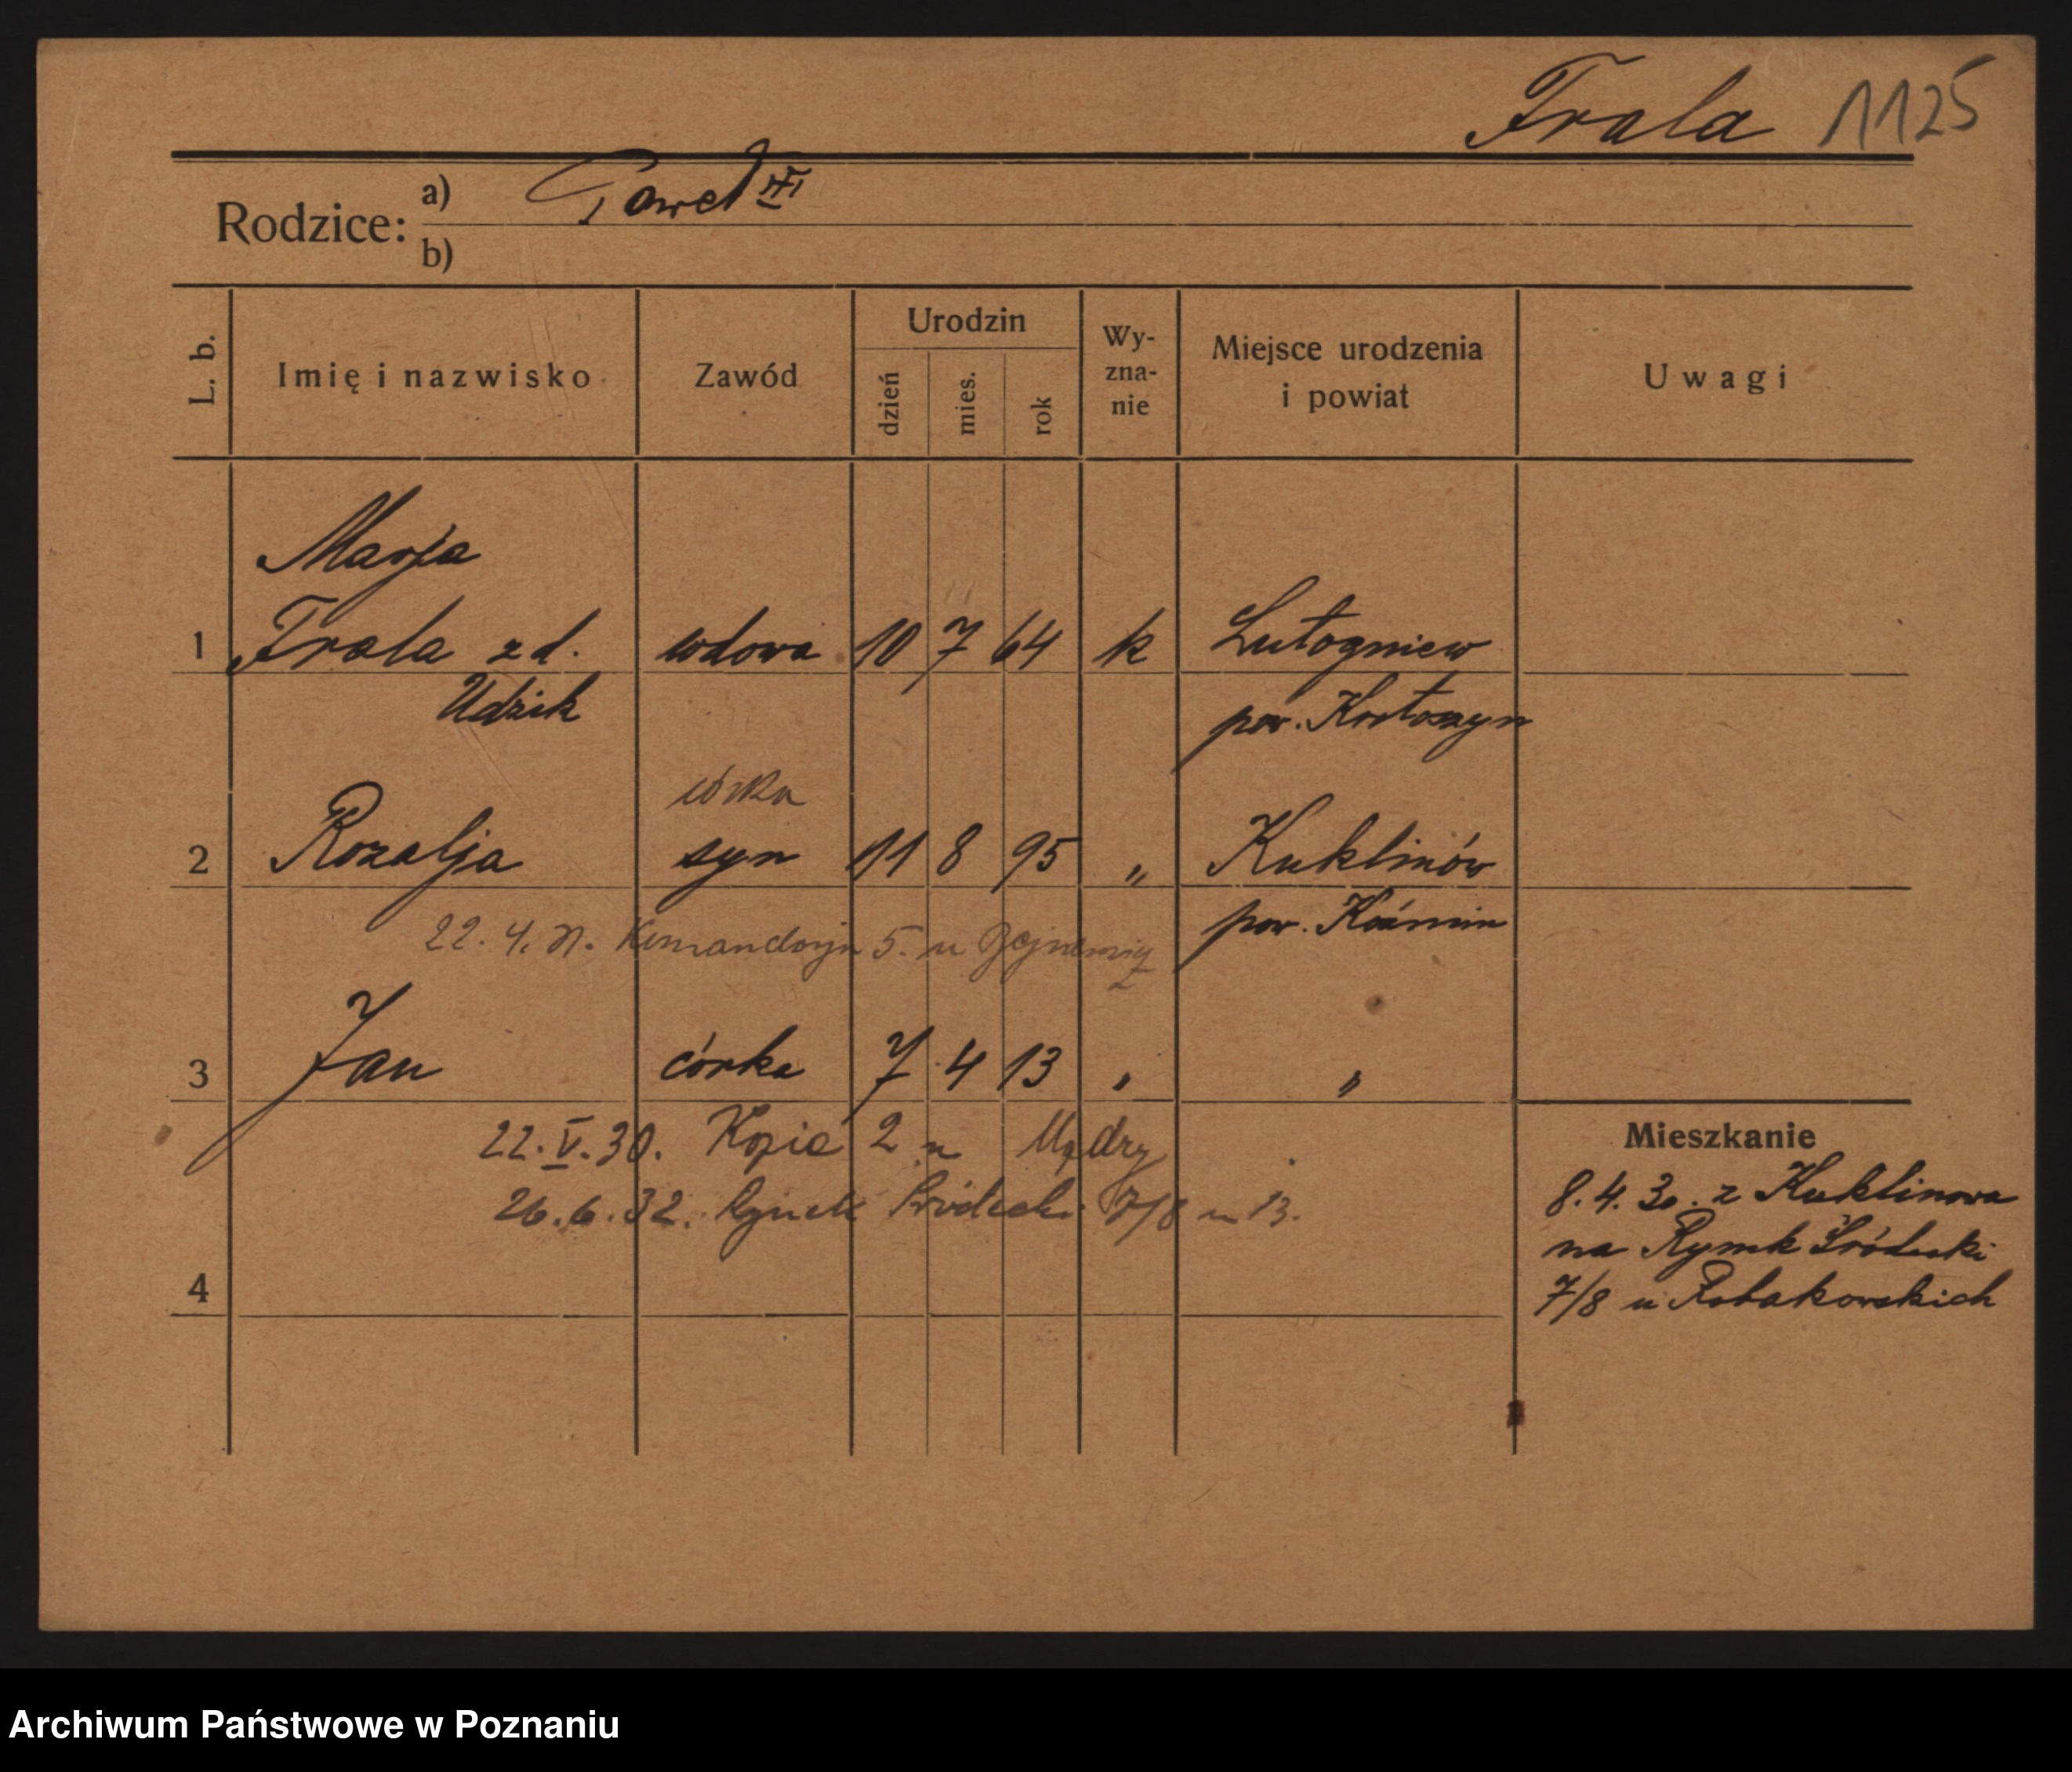 Frala 1125
Rodzice: a) Paweł
b)
L. b. Imię i nazwisko Zawód Urodzin dzień mies. rok Wy-zna-nie Miejsce urodzenia i powiat Uwagi
Marja
1 Frala zd. wdowa 10 7 64 k Lutogniew
Udzik pow. Krotoszyn
córka
2 Rozalja syn 11 8 95 „ Kuklinów
pow. Koźmin
22. 4. Komandorja 5. u
3 Jan córka 7 4 13 „ „
22. V. 30. 2 u Mądry
26.6.32. Rynek Śródecki 7/8 m 13.
4
Mieszkanie
8. 4. 30. z Kuklinowa
na Rynek Śródecki
7/8 u Robakowskich
Archiwum Państwowe w Poznaniu